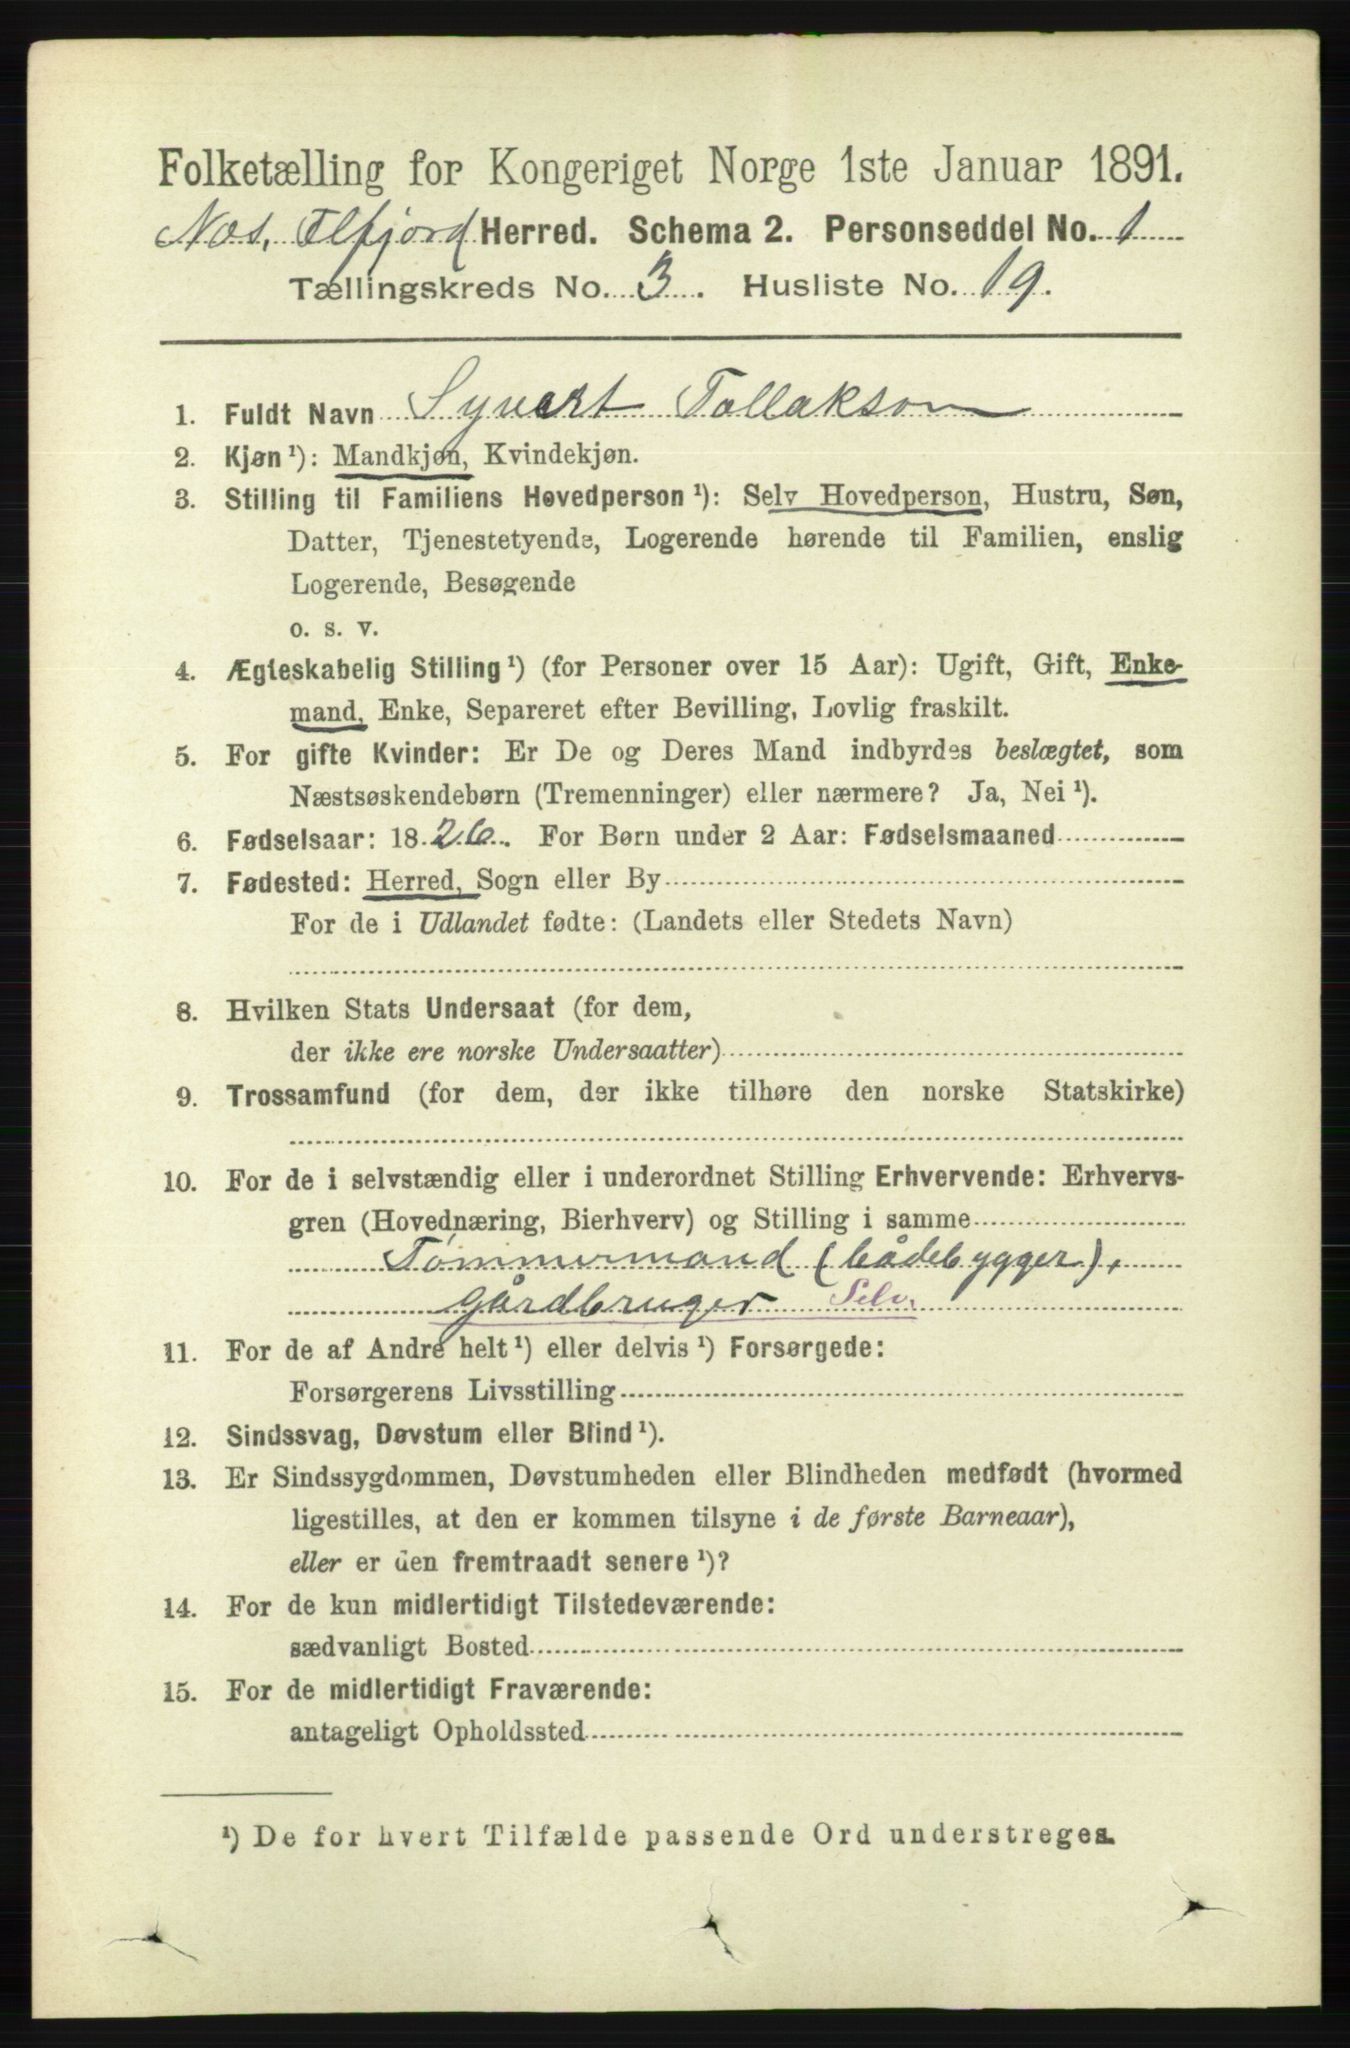 Folketælling for Kongeriget Norge 1ste Januar 1891.
Nes, Flfjord Herred. Schema 2. Personseddel No. 1
Tællingskreds No. 3. Husliste No. 19.
1. Fuldt Navn Syvert Tollakson
2. Kjøn ¹): Mandkjøn, Kvindekjøn.
3. Stilling til Familiens Hovedperson ¹): Selv Hovedperson, Hustru, Søn,
Datter, Tjenestetyende, Logerende hørende til Familien, enslig
Logerende, Besøgende
o. s. v.
4. Ægteskabelig Stilling ¹) (for Personer over 15 Aar): Ugift, Gift, Enke-
mand, Enke, Separeret efter Bevilling, Lovlig fraskilt.
5. For gifte Kvinder: Er De og Deres Mand indbyrdes beslægtet, som
Næstsøskendebørn (Tremenninger) eller nærmere? Ja, Nei ¹).
6. Fødselsaar: 1826. For Børn under 2 Aar: Fødselsmaaned
7. Fødested: Herred, Sogn eller By
For de i Udlandet fødte: (Landets eller Stedets Navn)
8. Hvilken Stats Undersaat (for dem,
der ikke ere norske Undersaatter)
9. Trossamfund (for dem, der ikke tilhøre den norske Statskirke)
10. For de i selvstændig eller i underordnet Stilling Erhvervende: Erhvervs-
gren (Hovednæring, Bierhverv) og Stilling i samme
Tømmermand (bådebygger),
gårdbruger Selv.
11. For de af Andre helt ¹) eller delvis ¹) Forsørgede:
Forsørgerens Livsstilling
12. Sindssvag, Døvstum eller Blind ¹).
13. Er Sindssygdommen, Døvstumheden eller Blindheden medfødt (hvormed
ligestilles, at den er kommen tilsyne i de første Barneaar),
eller er den fremtraadt senere ¹)?
14. For de kun midlertidigt Tilstedeværende:
sædvanligt Bosted
15. For de midlertidigt Fraværende:
antageligt Opholdssted
¹) De for hvert Tilfælde passende Ord understreges.